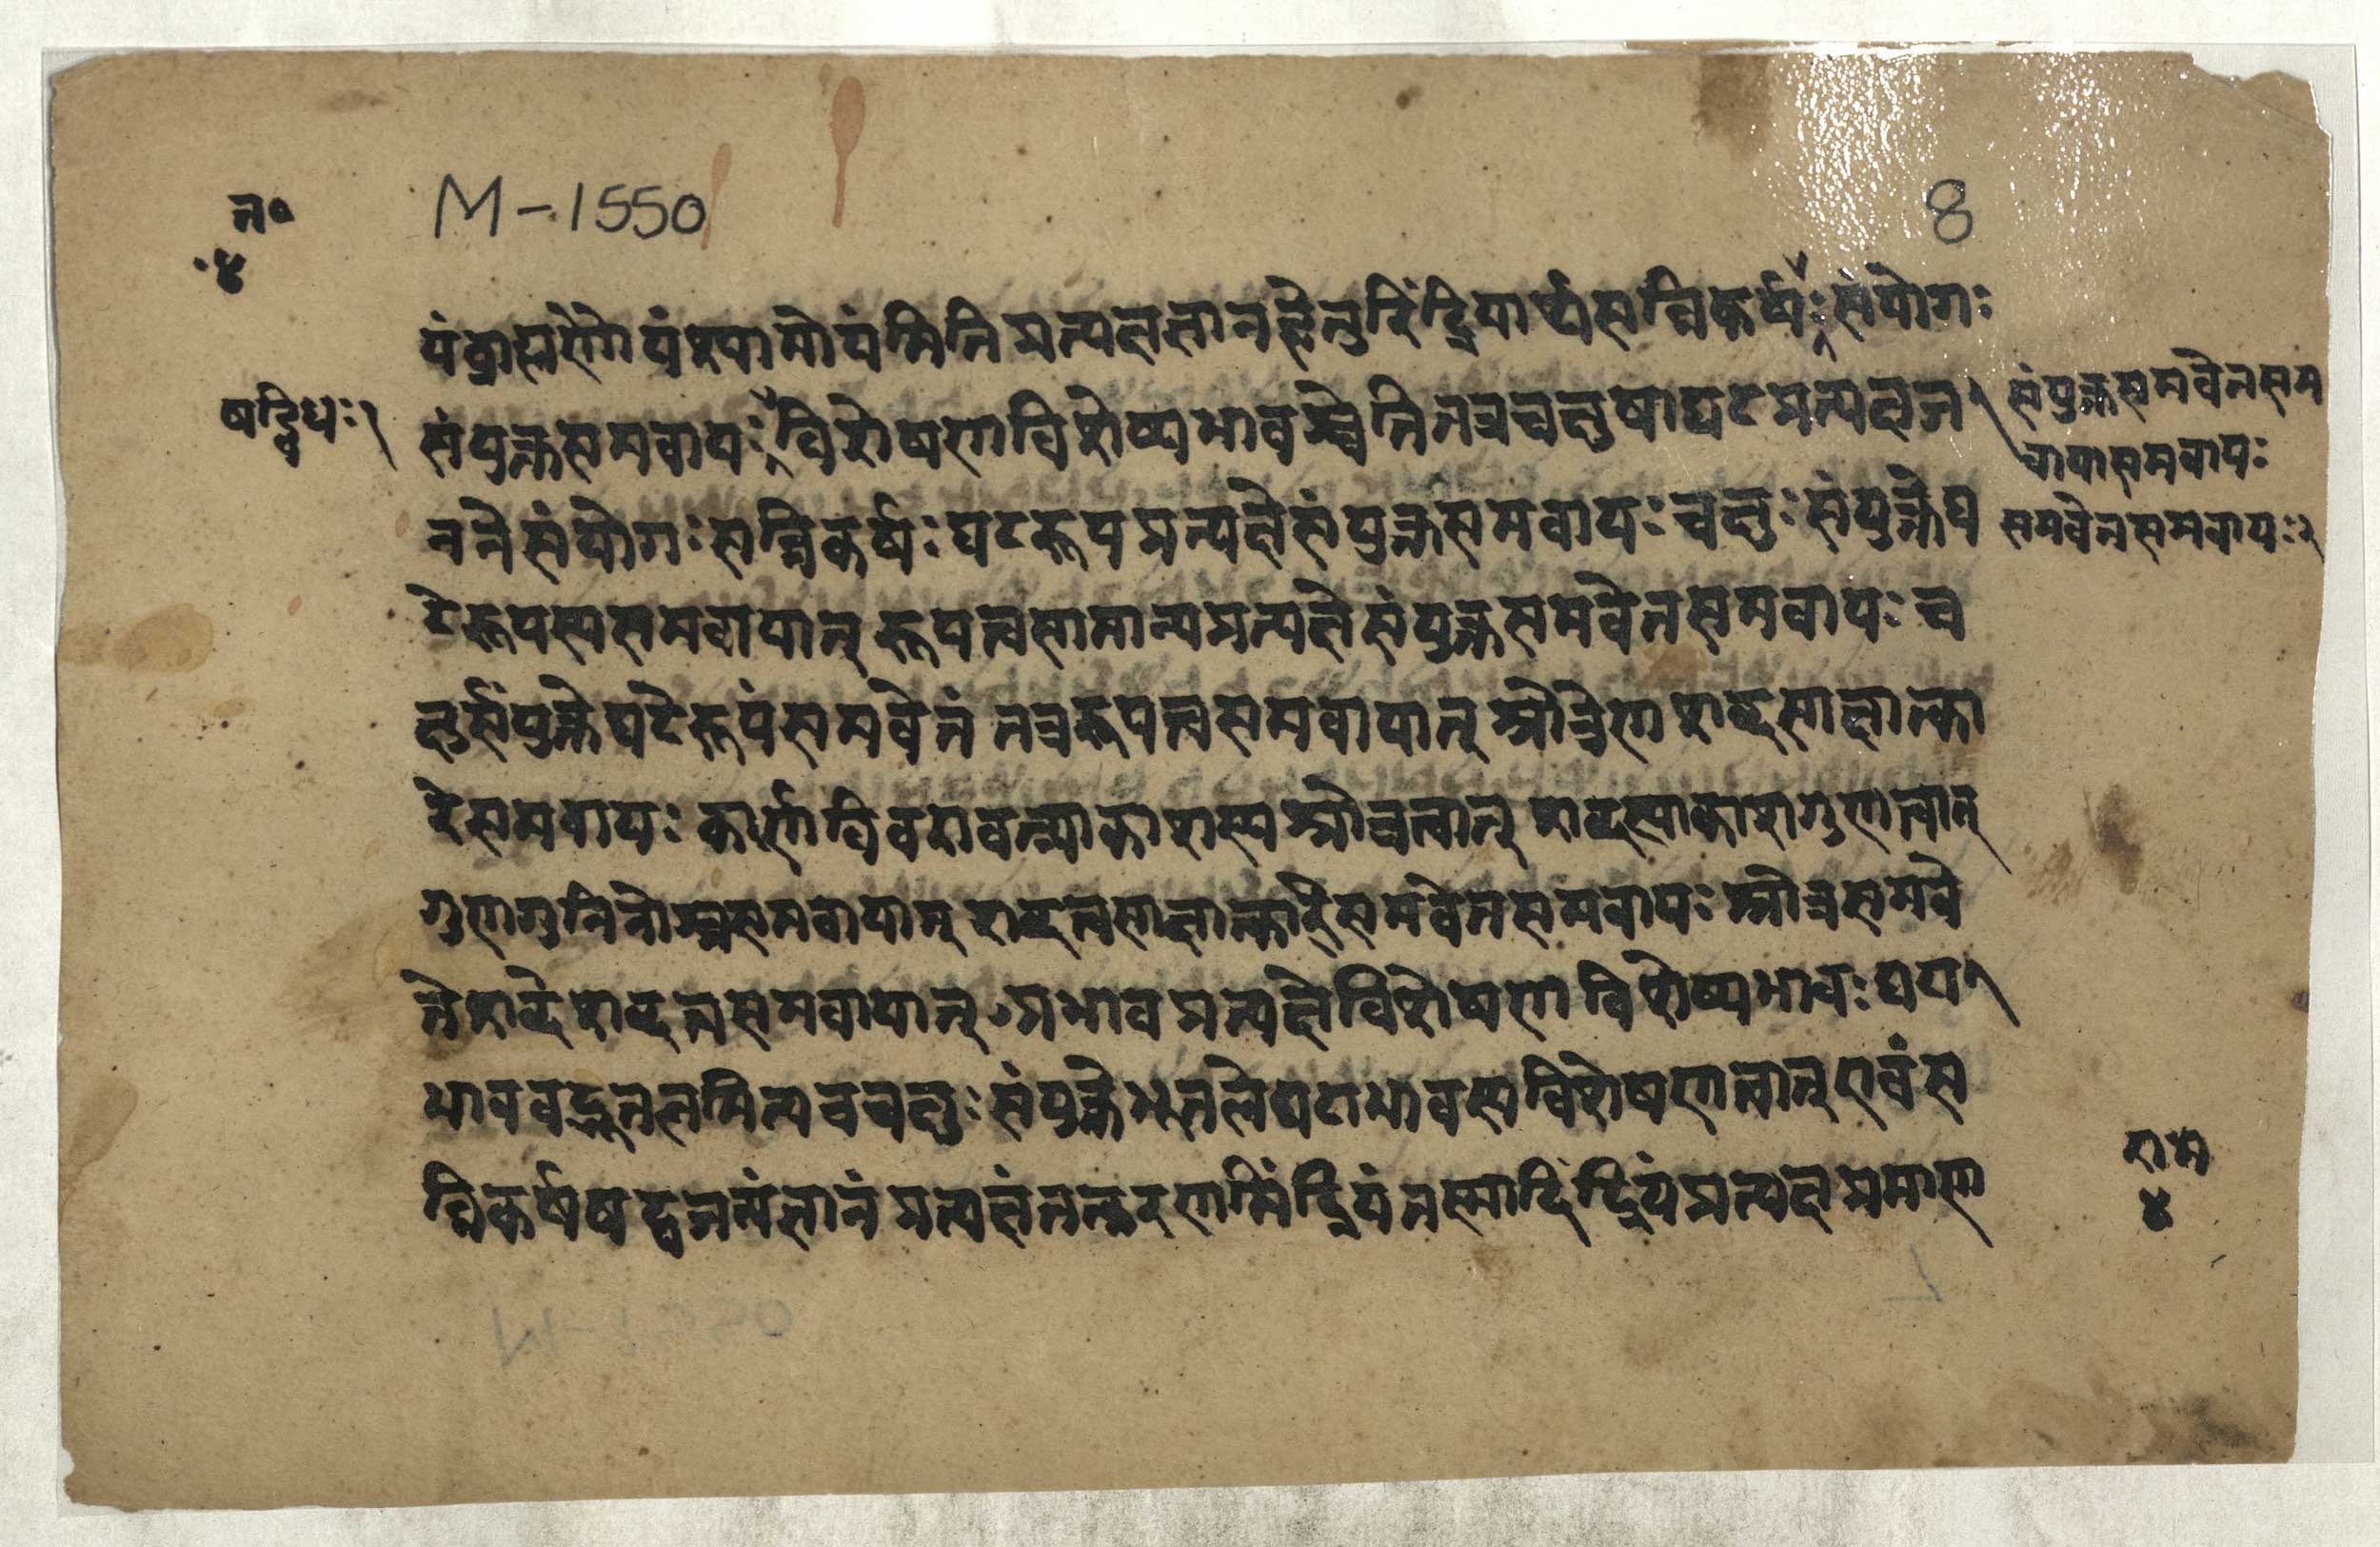 त॰
४
M-1550
8
यंब्राह्मणोयंश्यामोयंमितिप्रत्यक्षज्ञानहेतुरिंद्रियार्थसन्निकर्षः संयोगः
षड्विधः १
संयुक्तसमवायः विशेषणविशेष्यभावश्चेतितत्रचक्षुषाघटप्रत्यक्षज
संयुक्तसमवेतसम
वायासमवायः
ननेसंयोगः सन्निकर्षः घटरूपप्रत्यक्षेसंयुक्तसमवायः चक्षुः संयुक्तेघ
समवेतसमवायः २
टेरूपस्यसमवायात् रूपत्वसामान्यप्रत्यक्षेसंयुक्तसमवेतसमवायः च
क्षुर्संयुक्तेघटेरूपंसमवेतं तत्ररूपत्वसमवायात् श्रोत्रेणशब्दसाक्षात्का
रेसमवायः कार्णविवरावत्त्याकाशस्यश्रोत्रत्वात् शब्दस्याकाशगुणत्वात्
गुणगुनिनोश्चसमवायात् शब्दत्वसाक्षात्कारेसमवेतसमवायः श्रोत्रसमवे
तेशब्देशब्दत्वसमवायात् अभावप्रत्यक्षेविशेषणविशेष्यभावः घटा
भाववद्भूतलमित्यत्रचक्षुः संयुक्तेभूतलेघटाभावस्यविशेषणत्वात् एवंस
न्निकर्षषट्कजन्यंज्ञानंप्रत्यक्षंतत्करणमिंद्रियंतस्मादिंद्रियंप्रत्यक्षप्रमाण
राम
४